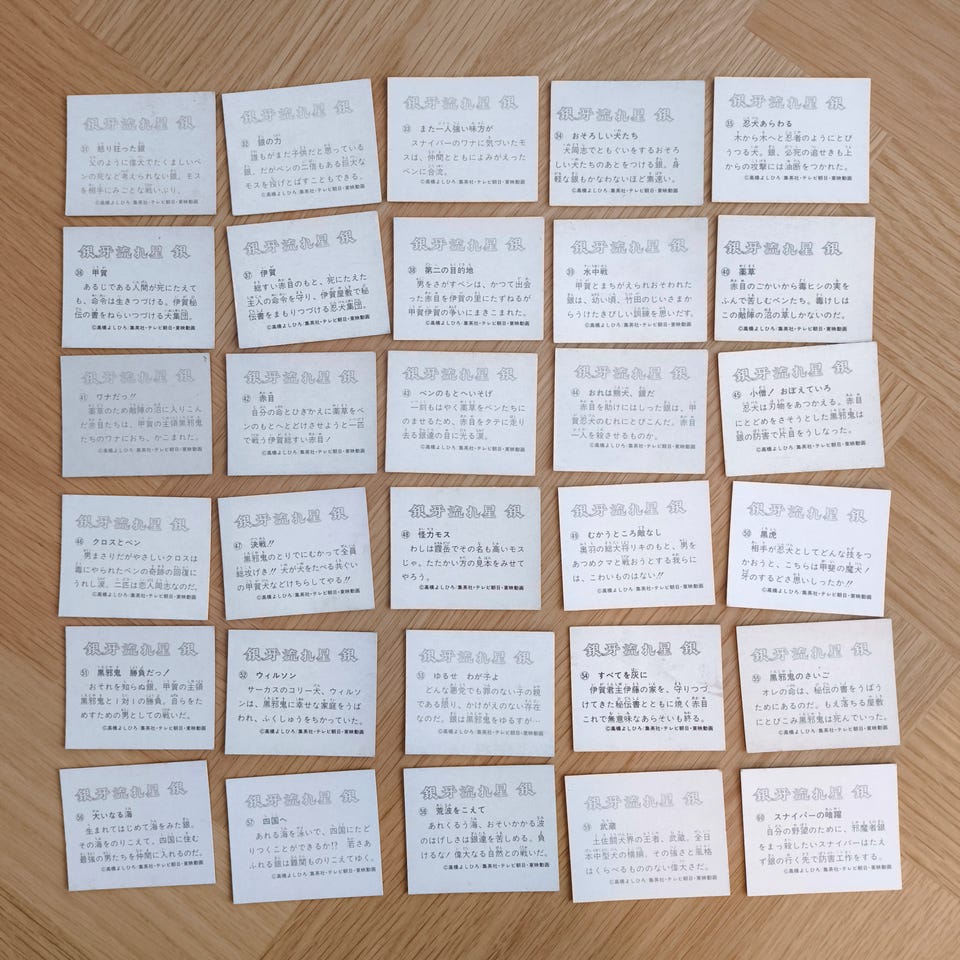 銀牙流れ星 銀
31 怒り狂った銀
父のように偉大でたくましいベ
ンの死など考えられない銀、モス
を相手にみごとな戦いぶり。
©高橋よしひろ・集英社・テレビ朝日・東映動画
銀牙流れ星 銀
32 銀の力
誰もがまだ子供だと思っている
銀、だがベンの二倍もある巨大な
モスを投げとばすこともできる。
©高橋よしひろ・集英社・テレビ朝日・東映動画
銀牙流れ星 銀
33 また一人強い味方が
スナイパーのワナに気づいたモ
スは、仲間とともによみがえった
ベンに合流。
©高橋よしひろ・集英社・テレビ朝日・東映動画
銀牙流れ星 銀
34 おそろしい犬たち
犬同志でともぐいをするおそろ
しい犬たちのあとをつける銀。身
軽な銀もかなわないほど素速い。
©高橋よしひろ・集英社・テレビ朝日・東映動画
銀牙流れ星 銀
35 忍犬あらわる
木から木へと忍者のようにとび
うつる犬。銀、必死の追せきも上
からの攻撃には油断をつかれた。
©高橋よしひろ・集英社・テレビ朝日・東映動画
銀牙流れ星 銀
36 甲賀
あるじである人間が死にたえて
も、命令は生きつづける。伊賀秘
伝の書をねらいつづける忍犬集団。
©高橋よしひろ・集英社・テレビ朝日・東映動画
銀牙流れ星 銀
37 伊賀
総すい赤目のもと、死にたえた
主人の命令を守り、伊賀屋敷で秘
伝書をまもりつづける忍犬集団。
©高橋よしひろ・集英社・テレビ朝日・東映動画
銀牙流れ星 銀
38 第二の目的地
男をさがすベンは、かつて出会
った赤目を伊賀の里にたずねるが
甲賀伊賀の争いにまきこまれた。
©高橋よしひろ・集英社・テレビ朝日・東映動画
銀牙流れ星 銀
39 水中戦
甲賀とまちがえられおそわれた
銀は、幼い頃、竹田のじいさまか
らうけたきびしい訓練を思いだす。
©高橋よしひろ・集英社・テレビ朝日・東映動画
銀牙流れ星 銀
40 薬草
赤目のごかいから毒ヒシの実を
ふんで苦しむベンたち。毒けしは
この敵陣の沼の草しかないのだ。
©高橋よしひろ・集英社・テレビ朝日・東映動画
銀牙流れ星 銀
41 ワナだっ!!
薬草のため敵陣の沼に入りこん
だ赤目たちは、甲賀の主領黒邪鬼
たちのワナにおち、かこまれた。
©高橋よしひろ・集英社・テレビ朝日・東映動画
銀牙流れ星 銀
42 赤目
自分の命とひきかえに薬草をベ
ンのもとへとどけさせようと一匹
で戦う伊賀総すい赤目!
©高橋よしひろ・集英社・テレビ朝日・東映動画
銀牙流れ星 銀
43 ベンのもとへいそげ
一刻もはやく薬草をベンたちに
のませるため、赤目をタテに走り
去る銀達の目に光る涙。
©高橋よしひろ・集英社・テレビ朝日・東映動画
銀牙流れ星 銀
44 おれは熊犬、銀だ
赤目を助けにはしった銀は、甲
賀忍犬のむれにとびこんだ。赤目
一人を殺させるものか。
©高橋よしひろ・集英社・テレビ朝日・東映動画
銀牙流れ星 銀
45 小僧! おぼえていろ
忍犬は刃物をあつかえる。赤目
にとどめをさそうとした黒邪鬼は
銀の防害で片目をうしなった。
©高橋よしひろ・集英社・テレビ朝日・東映動画
銀牙流れ星 銀
46 クロスとベン
男まさりだがやさしいクロスは
毒にやられたベンの奇跡の回復に
うれし涙。二匹は恋人同志なのだ。
©高橋よしひろ・集英社・テレビ朝日・東映動画
銀牙流れ星 銀
47 決戦!!
黒邪鬼のとりでにむかって全員
総攻げき!! 犬が犬をたべる共ぐい
の甲賀犬などけちらしてやる!!
©高橋よしひろ・集英社・テレビ朝日・東映動画
銀牙流れ星 銀
48 怪力モス
わしは霞岳でその名も高いモス
じゃ。たたかい方の見本をみせて
やろう。
©高橋よしひろ・集英社・テレビ朝日・東映動画
銀牙流れ星 銀
49 むかうところ敵なし
奥羽の総大将リキのもと、男を
あつめクマと戦おうとする我らに
は、こわいものはない!!
©高橋よしひろ・集英社・テレビ朝日・東映動画
銀牙流れ星 銀
50 黒虎
相手が忍犬としてどんな技をつ
かおうと、こちらは甲斐の魔犬!
牙のするどさ思いしったか!!
©高橋よしひろ・集英社・テレビ朝日・東映動画
銀牙流れ星 銀
51 黒邪鬼 勝負だっ!
おそれを知らぬ銀。甲賀の主領
黒邪鬼と1対1の勝負。自らをた
めすための男としての戦いだ。
©高橋よしひろ・集英社・テレビ朝日・東映動画
銀牙流れ星 銀
52 ウィルソン
サーカスのコリー犬、ウィルソ
ンは、黒邪鬼に幸せな家庭をうば
われ、ふくしゅうをちかっていた。
©高橋よしひろ・集英社・テレビ朝日・東映動画
銀牙流れ星 銀
53 ゆるせ わが子よ
どんな悪党でも罪のない子の親
である限り、かけがえのない存在
なのだ。銀は黒邪鬼をゆるすが…
©高橋よしひろ・集英社・テレビ朝日・東映動画
銀牙流れ星 銀
54 すべてを灰に
伊賀君主伊藤の家を、守りつづ
けてきた秘伝書とともに焼く赤目
これで無意味なあらそいも終る。
©高橋よしひろ・集英社・テレビ朝日・東映動画
銀牙流れ星 銀
55 黒邪鬼のさいご
オレの命は、秘伝の書をうばう
ためにあるのだ。もえ落ちる屋敷
にとびこみ黒邪鬼は死んでいった。
©高橋よしひろ・集英社・テレビ朝日・東映動画
銀牙流れ星 銀
56 大いなる海
生まれてはじめて海をみた銀。
その海をのりこえて、四国に住む
最強の男たちを仲間に入れるのだ。
©高橋よしひろ・集英社・テレビ朝日・東映動画
銀牙流れ星 銀
57 四国へ
あれる海を泳いで、四国にたど
りつくことができるか!? 若さあ
ふれる銀は難関ものりこえてゆく。
©高橋よしひろ・集英社・テレビ朝日・東映動画
銀牙流れ星 銀
58 荒波をこえて
あれくるう海、おそいかかる波
のはげしさは銀達を苦しめる。負
けるな! 偉大なる自然との戦いだ。
©高橋よしひろ・集英社・テレビ朝日・東映動画
銀牙流れ星 銀
59 武蔵
土佐闘犬界の王者、武蔵。全日
本中型犬の横綱、その強さと風格
はくらべるもののない偉大さだ。
©高橋よしひろ・集英社・テレビ朝日・東映動画
銀牙流れ星 銀
60 スナイパーの暗躍
自分の野望のために、邪魔者銀
をまっ殺したいスナイパーはたえ
ず銀の行く先で防害工作をする。
©高橋よしひろ・集英社・テレビ朝日・東映動画